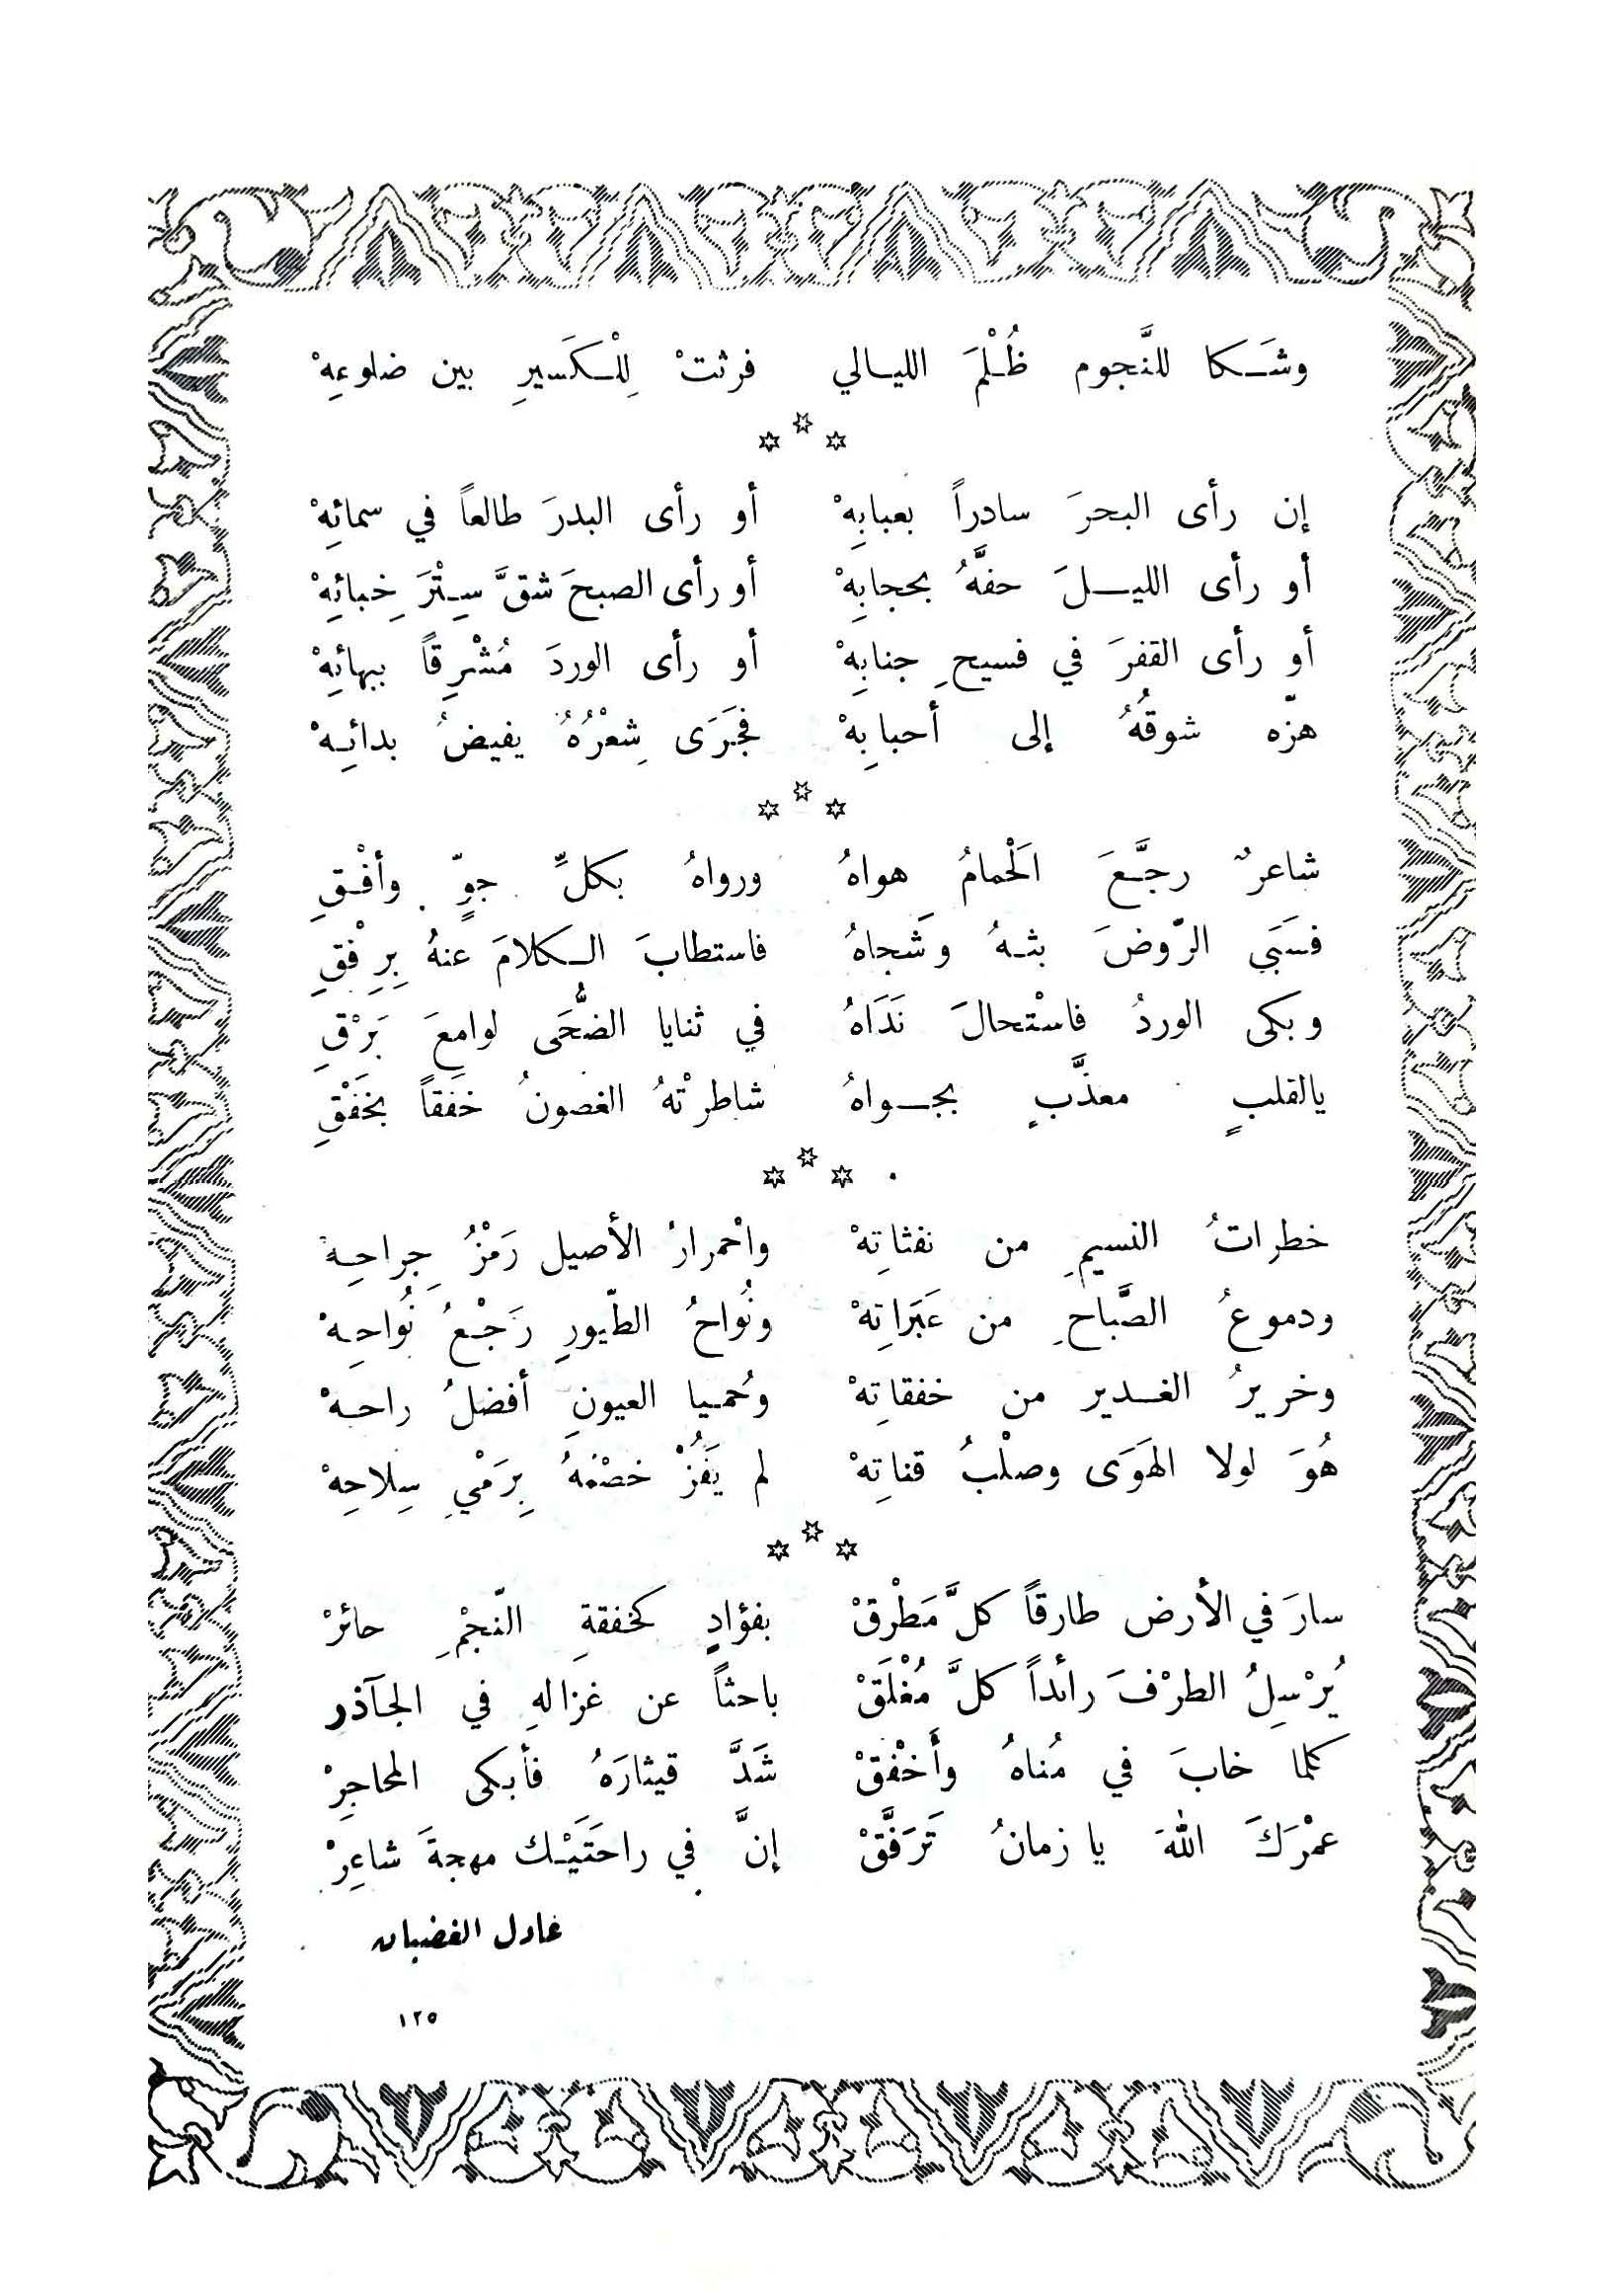 وشَكا للنَّجوم ظُلْمَ الليالي فرثتْ لِلْكَسيرِ بين ضلوعِهْ
* * *
إن رأى البحرَ سادراً بعبابِهْ أو رأى البدرَ طالعاً في سمائِهْ
أو رأى الليلَ حفَّهُ بحجابِهْ أو رأى الصبحَ شقَّ سِتْرَ خِبائِهْ
أو رأى القفرَ في فسيحِ جنابِهْ أو رأى الوردَ مُشْرِقاً ببهائِهْ
هزّه شوقُهُ إلى أحبابِهْ فجَرَى شِعْرُهُ يفيضُ بدائِهْ
* * *
شاعرٌ رجَّعَ الَحْمامُ هواهُ ورواهُ بكلِّ جوٍّ وأفْقِ
فسَبَى الرّوضَ بثهُ وشَجاهُ فاستطابَ الكلامَ عنهُ بِرِفْقِ
وبكى الوردُ فاسْتحالَ نَدَاهُ في ثنايا الضُّحَى لوامعَ بَرْقِ
يالقلبٍ معذَّبٍ بجواهُ شاطرْتهُ الغصونُ خَفقاً بخَفْقِ
* * *
خطراتُ النسيمِ من نفثاتِهْ واحْمرارُ الأصيل رَمْزُ جِراحِهْ
ودموعُ الصَّباحِ من عَبَراتِهْ ونُواحُ الطّيورِ رَجْعُ نُواحِهْ
وخريرُ الغدير من خفقاتِهْ وحُميا العيونِ أفضلُ راحهْ
هُوَ لولا الهَوَى وصلْبُ قناتِهْ لم يَفُزْ خصْمُهُ بِرَمْيِ سِلاحِهْ
* * *
سارَ في الأرض طارقاً كلَّ مَطْرقْ بفؤادٍ كخفقةِ النّجْمِ حائرْ
يُرْسِلُ الطرْفَ رائداً كلَّ مُغْلَقْ باحثاً عن غزالهِ في الجآذر
كلما خابَ في مُناهُ وأَخْفَقْ شَدَّ قيثارَهُ فأبكى المحاجِرْ
عمْرَكَ اللهَ يا زمانُ تَرَفَّقْ إنَّ في راحَتَيْك مهجةَ شاعِرْ
عادل الغضبان
١٢٥